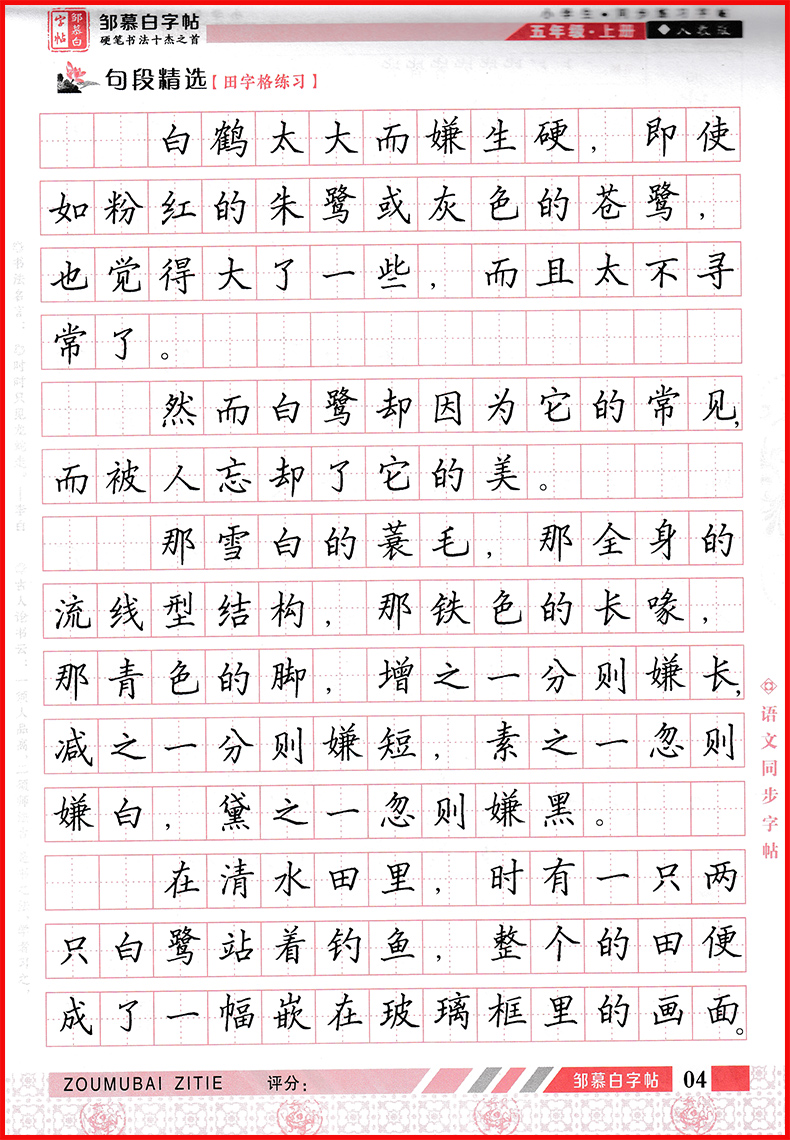 邹慕白字帖
邹慕白字帖
硬笔书法十杰之首
五年级·上册
◆人教版
句段精选【田字格练习】
白鹤太大而嫌生硬，即使
如粉红的朱鹭或灰色的苍鹭，
也觉得大了一些，而且太不寻
常了。
然而白鹭却因为它的常见，
而被人忘却了它的美。
那雪白的蓑毛，那全身的
流线型结构，那铁色的长喙，
那青色的脚，增之一分则嫌长，
减之一分则嫌短，素之一忽则
嫌白，黛之一忽则嫌黑。
在清水田里，时有一只两
只白鹭站着钓鱼，整个的田便
成了一幅嵌在玻璃框里的画面。
语文同步字帖
ZOUMUBAI ZITIE
评分：
邹慕白字帖
04